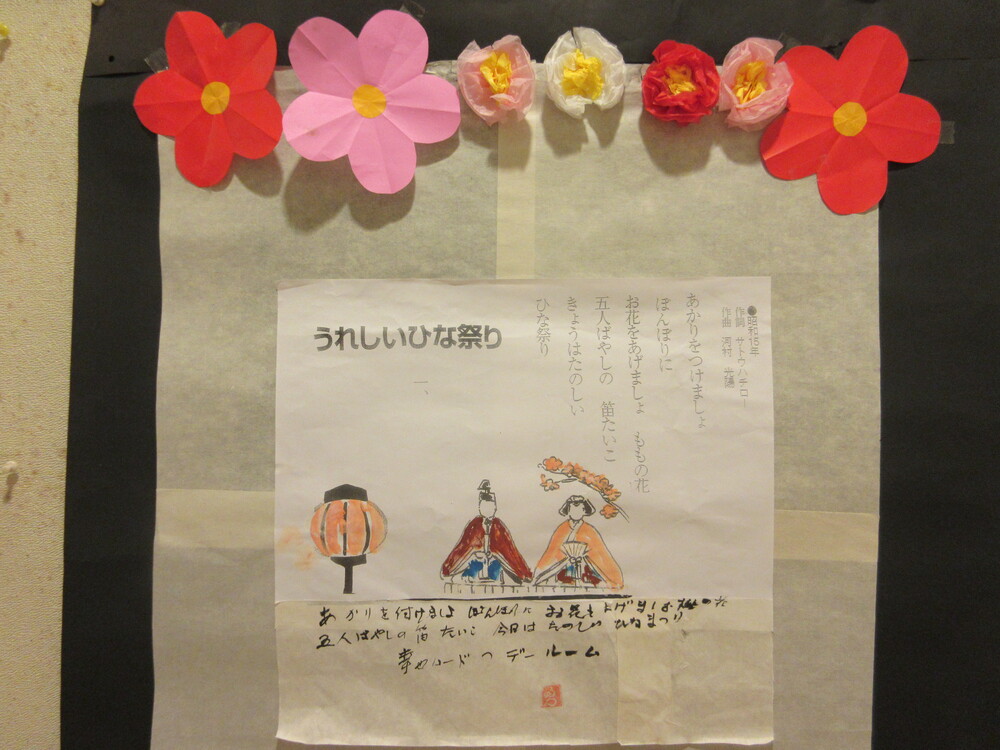 ●昭和15年
作詞 サトウハチロー
作曲 河村 光陽
うれしいひな祭り
一、
あかりをつけましょ
ぼんぼりに
お花をあげましょ ももの花
五人ばやしの 笛たいこ
きょうはたのしい
ひな祭り
あかりを付けましょ ぼんぼりに お花を上げましょ 桃の花
五人ばやしの笛たいこ 今日はたのしい ひなまつり
デールーム